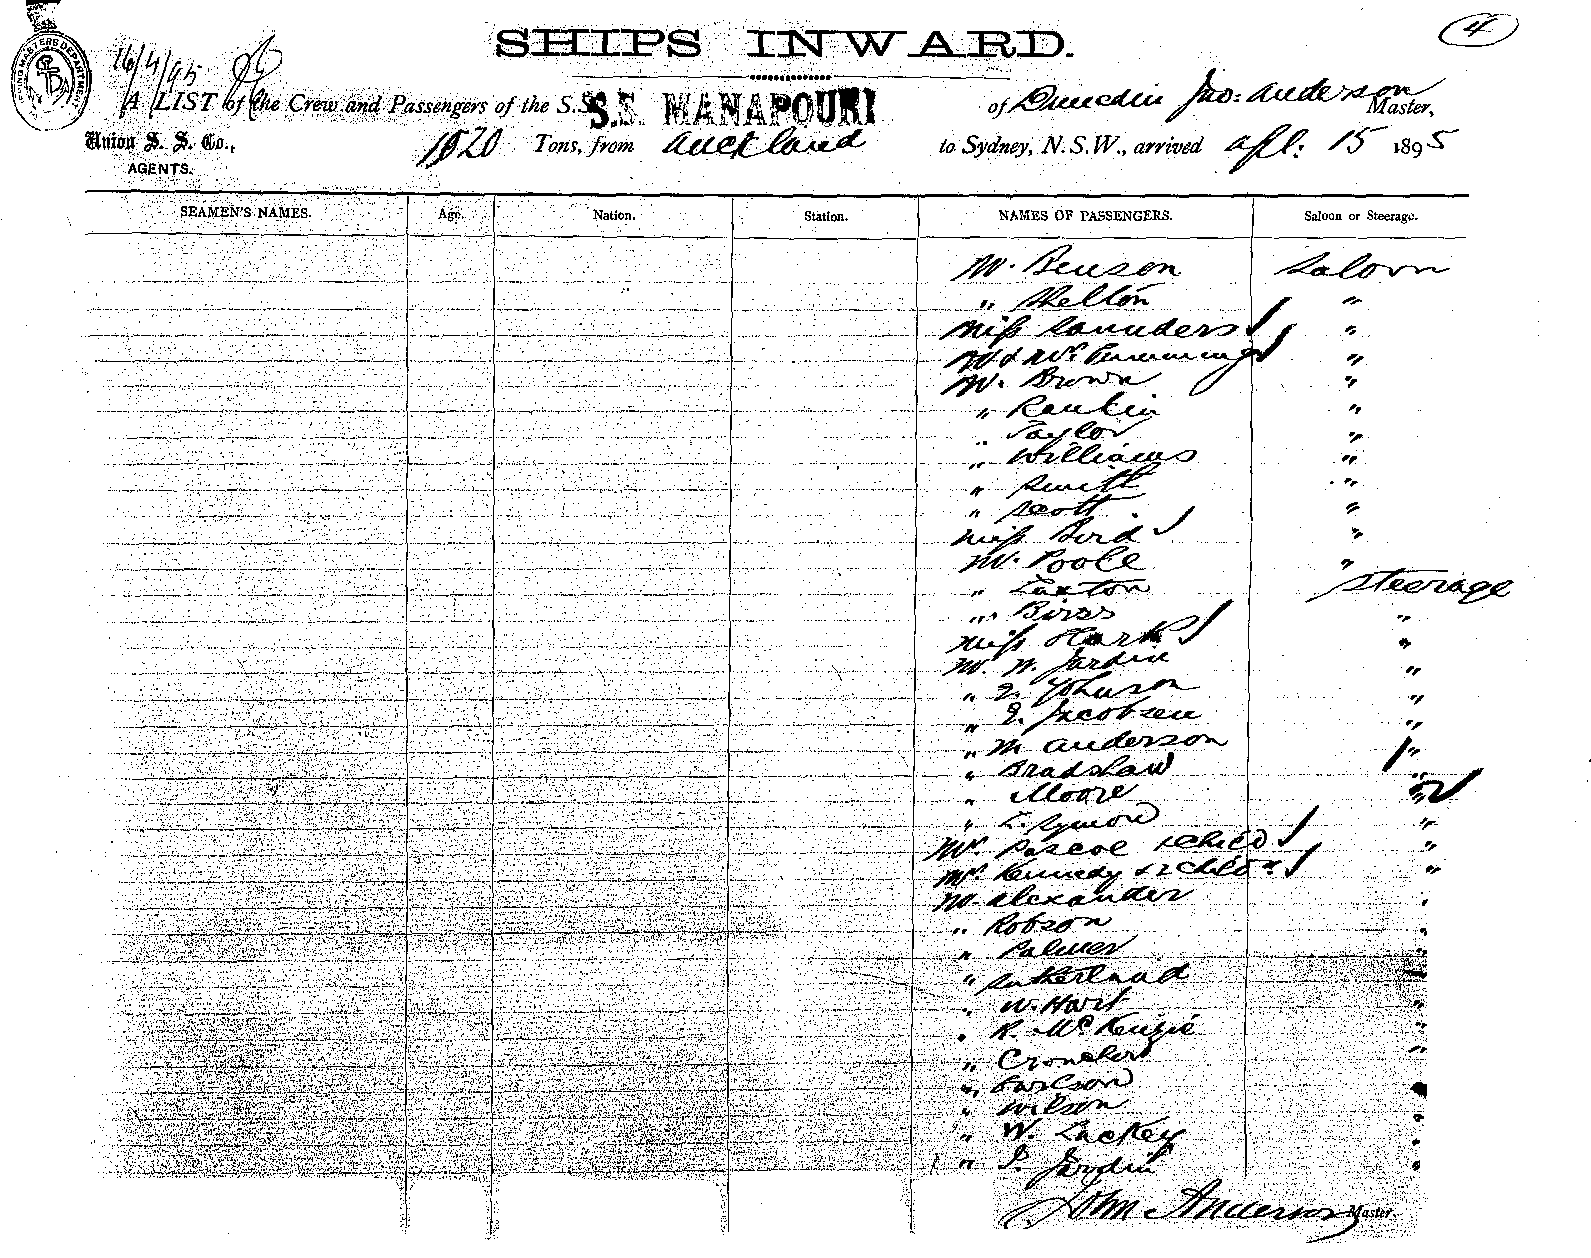 SHIPS INWARD.
4
16/4/95
A LIST of the Crew and Passengers of the S.S. S.S. MANAPOURI of Dunedin Jno: Anderson Master,
Union S. S. Co.,
AGENTS.
1020 Tons, from Auckland to Sydney, N.S.W., arrived Apl: 15 1895
SEAMEN'S NAMES. Age. Nation. Station. NAMES OF PASSENGERS. Saloon or Steerage.
Mr. Benson Saloon
" Skelton "
Miss Saunders "
Mr & Mrs "
Mr. Brown "
" Rankin "
" Taylor "
" Williams "
" Smith "
" Scott "
Miss Bird "
Mr. Poole "
" Laxton Steerage
" "
Miss "
Mr. W. Jardin "
" Johnson "
" Jacobsen "
" M Anderson "
" Bradshaw "
" Moore "
" Symon "
Mrs Pascoe 1 Child "
Mrs Kennedy & 2 Childn "
Mr Alexander "
" Robson "
" Palmer "
" Sutherland "
" W. Hart "
" R. McKenzie "
" "
" Carlson "
" Wilson "
" W. Lackey "
" Jardin "
John Anderson Master.